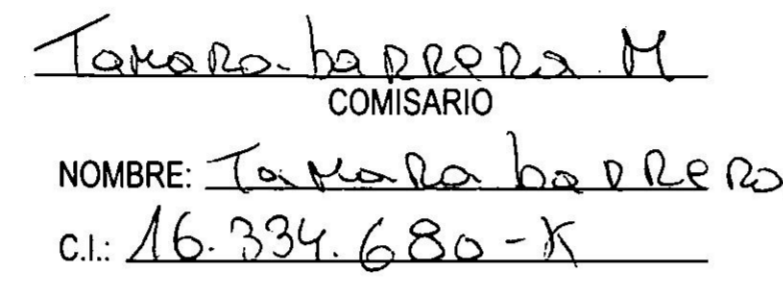 Tamara barrera M
COMISARIO
NOMBRE: Tamara barrera
C.I.: 16.334.680-K